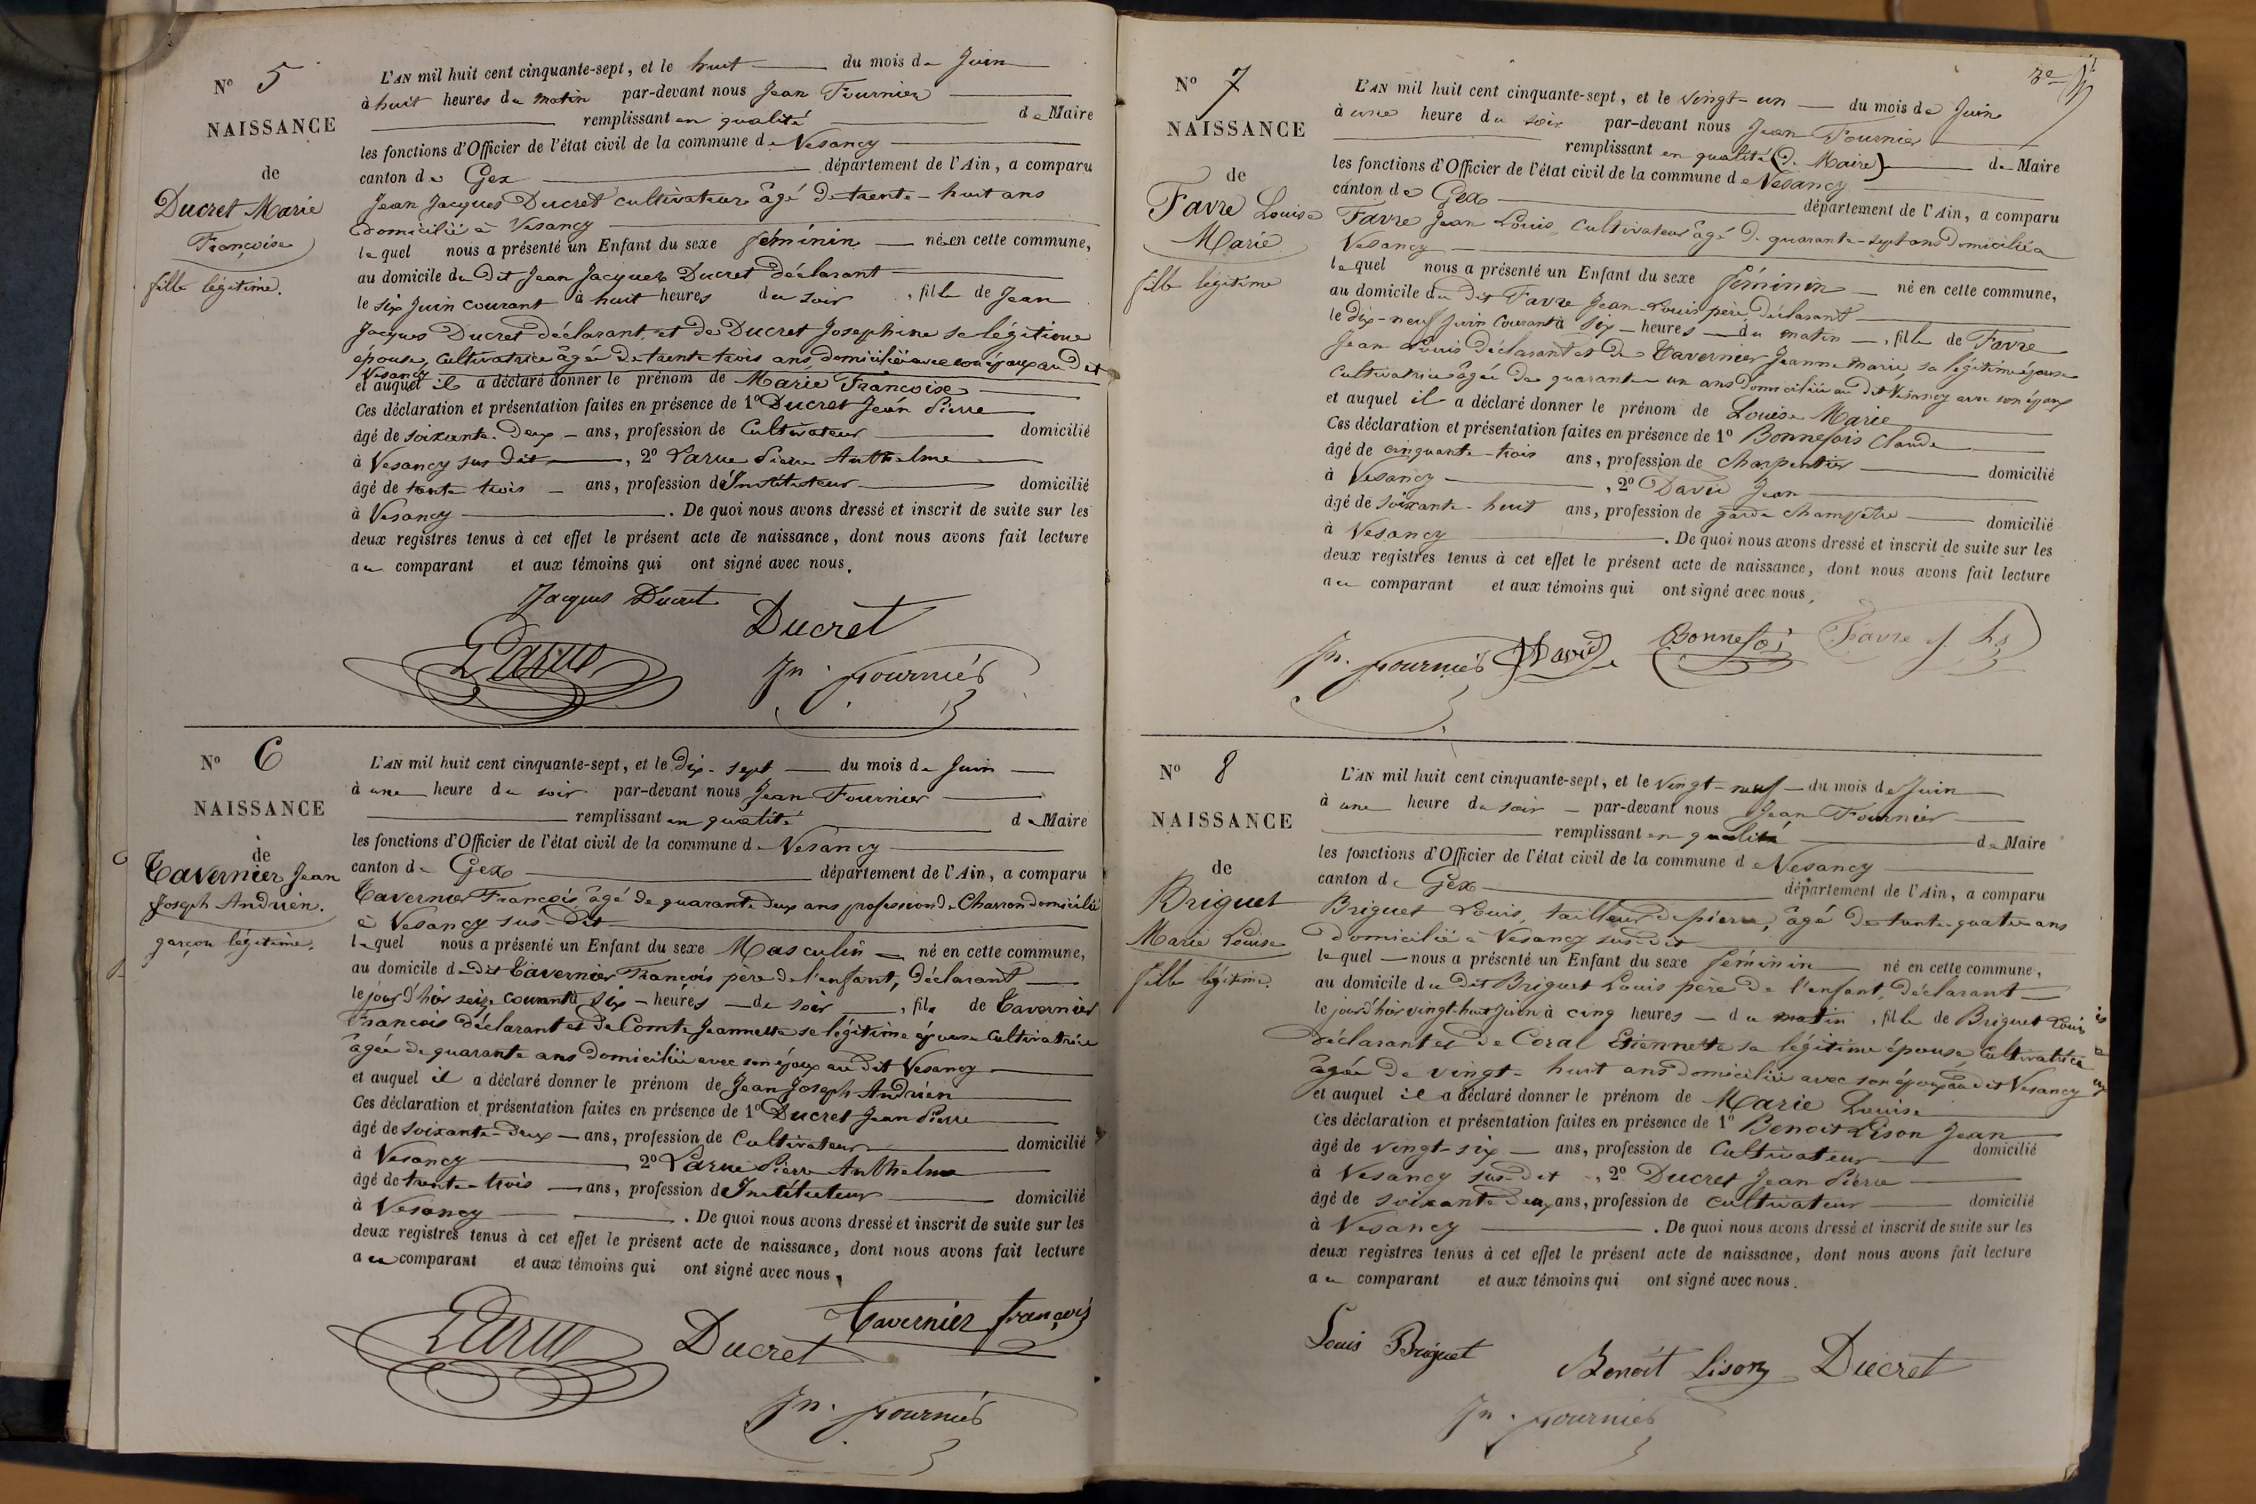 N° 5
NAISSANCE
de
Ducret Marie
Françoise
fille légitime.
L'AN mil huit cent cinquante-sept, et le huit du mois de Juin
à huit heures du matin par-devant nous Jean Fournier
remplissant en qualité de Maire
les fonctions d'Officier de l'état civil de la commune de Vesancy
canton de Gex département de l'Ain, a comparu
Jean Jacques Ducret cultivateur âgé de trente-huit ans
domicilié à Vesancy
lequel nous a présenté un Enfant du sexe féminin né en cette commune,
au domicile du dit Jean Jacques Ducret déclarant
le six Juin courant à huit heures du soir, fille de Jean
Jacques Ducret déclarant et de Ducret Josephine sa légitime
épouse, cultivatrice âgée de trente trois ans domiciliée avec son époux au dit
Vesancy
et auquel il a déclaré donner le prénom de Marie Françoise
Ces déclaration et présentation faites en présence de 1° Ducret Jean Pierre
âgé de soixante-deux ans, profession de Cultivateur domicilié
à Vesancy sus dit, 2° Larue Pierre Anthelme
âgé de trente trois ans, profession d'Instituteur domicilié
à Vesancy. De quoi nous avons dressé et inscrit de suite sur les
deux registres tenus à cet effet le présent acte de naissance, dont nous avons fait lecture
au comparant et aux témoins qui ont signé avec nous.
Jacques Ducret
Ducret
Larue
Jn. Fournier
N° 6
NAISSANCE
de
Tavernier Jean
Joseph Andrien.
garçon légitime.
L'AN mil huit cent cinquante-sept, et le dix-sept du mois de Juin
à une heure du soir par-devant nous Jean Fournier
remplissant en qualité de Maire
les fonctions d'Officier de l'état civil de la commune de Vesancy
canton de Gex département de l'Ain, a comparu
Tavernier François âgé de quarante deux ans profession de Charron domicilié
à Vesancy sus-dit
lequel nous a présenté un Enfant du sexe Masculin né en cette commune,
au domicile de dit Tavernier François père de l'enfant, déclarant
le jour d'hier seize courant à six heures de soir, fils de Tavernier
François déclarant et de Comte Jeannette sa légitime épouse cultivatrice
âgée de quarante ans domiciliée avec son époux au dit Vesancy
et auquel il a déclaré donner le prénom de Jean Joseph Andrien
Ces déclaration et présentation faites en présence de 1° Ducret Jean Pierre
âgé de soixante-deux ans, profession de Cultivateur domicilié
à Vesancy 2° Larue Pierre Anthelme
âgé de trente-trois ans, profession d'Instituteur domicilié
à Vesancy. De quoi nous avons dressé et inscrit de suite sur les
deux registres tenus à cet effet le présent acte de naissance, dont nous avons fait lecture
au comparant et aux témoins qui ont signé avec nous,
Tavernier françois
Larue
Ducret
Jn. Fournier
N° 7
NAISSANCE
de
Favre Louise
Marie
fille légitime
3e
L'AN mil huit cent cinquante-sept, et le vingt-un du mois de Juin
à une heure du soir par-devant nous Jean Fournier
remplissant en qualité (de Maire) de Maire
les fonctions d'Officier de l'état civil de la commune de Vesancy
canton de Gex département de l'Ain, a comparu
Favre Jean Louis, cultivateur âgé de quarante-sept ans domicilié à
Vesancy
lequel nous a présenté un Enfant du sexe féminin né en cette commune,
au domicile du dit Favre Jean-Louis père, déclarant
le dix-neuf Juin courant à six heures du matin, fille de Favre
Jean Louis déclarant et de Tavernier Jeanne Marie sa légitime épouse
cultivatrice âgée de quarante un ans domiciliée au dit Vesancy avec son époux
et auquel il a déclaré donner le prénom de Louise Marie
Ces déclaration et présentation faites en présence de 1° Bonnefois Claude
âgé de cinquante-trois ans, profession de charpentier domicilié
à Vesancy, 2° David Jean
âgé de soixante-huit ans, profession de garde champêtre domicilié
à Vesancy. De quoi nous avons dressé et inscrit de suite sur les
deux registres tenus à cet effet le présent acte de naissance, dont nous avons fait lecture
au comparant et aux témoins qui ont signé avec nous,
Jn. Fournier David Bonnefoi Favre
N° 8
NAISSANCE
de
Briguet
Marie Louise
fille légitime.
L'AN mil huit cent cinquante-sept, et le vingt-neuf du mois de Juin
à une heure du soir par-devant nous Jean Fournier
remplissant en qualité de Maire
les fonctions d'Officier de l'état civil de la commune de Vesancy
canton de Gex département de l'Ain, a comparu
Briguet Louis, tailleur de pierre, âgé de trente-quatre ans
domicilié à Vesancy sus-dit
lequel nous a présenté un Enfant du sexe féminin né en cette commune,
au domicile du dit Briguet Louis père de l'enfant, déclarant
le jour d'hier vingt-huit Juin à cinq heures du matin, fille de Briguet Louis
déclarant et de Coral Etiennette sa légitime épouse, cultivatrice
âgée de vingt-huit ans domiciliée avec son époux au dit Vesancy
et auquel il a déclaré donner le prénom de Marie Louise
Ces déclaration et présentation faites en présence de 1° Benoit Lison Jean
âgé de vingt-six ans, profession de Cultivateur domicilié
à Vesancy sus-dit, 2° Ducret Jean Pierre
âgé de soixante deux ans, profession de cultivateur domicilié
à Vesancy. De quoi nous avons dressé et inscrit de suite sur les
deux registres tenus à cet effet le présent acte de naissance, dont nous avons fait lecture
au comparant et aux témoins qui ont signé avec nous.
Louis Briguet
Benoit Lison Ducret
Jn. Fournier